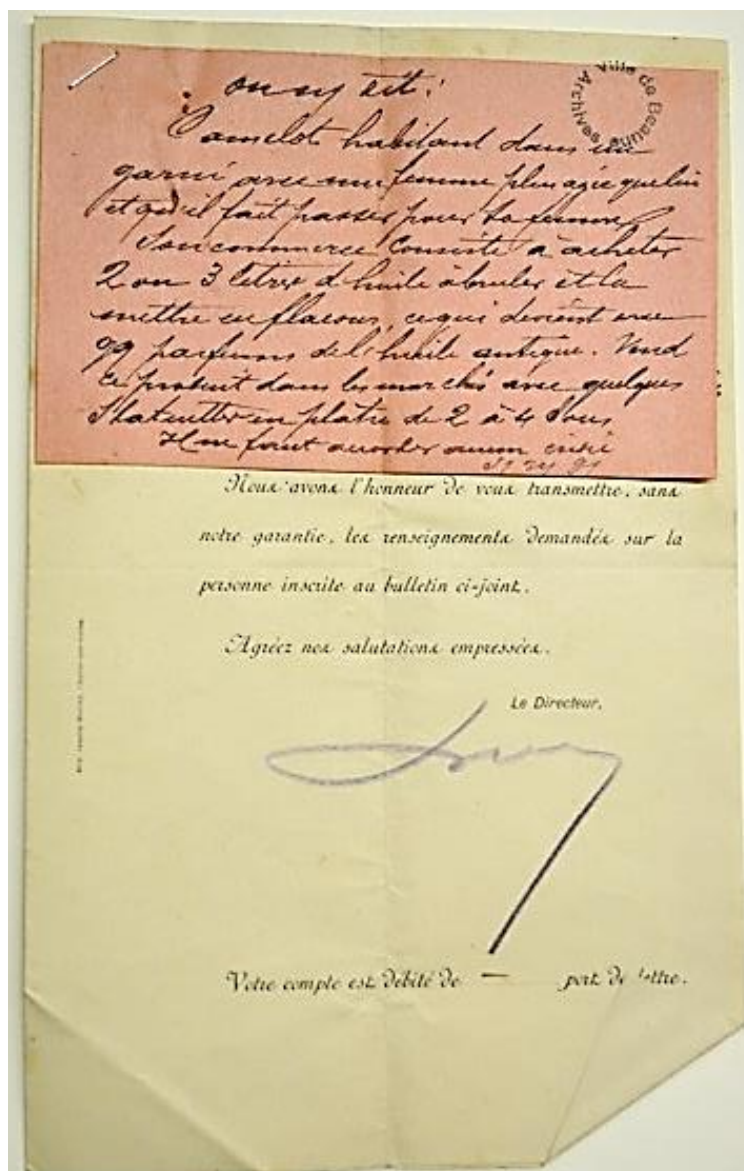 on ny dit :
Ville de Beaune
Archives
Camelot habitant dans un
garni avec une femme plus agée que lui
et qu'il fait passer pour sa femme
Son commerce consiste à acheter
2 ou 3 litres d'huile à bruler et la
mettre en flacons, ce qui devient avec
qq parfums de l'huile antique. Vend
ce produit dans les marchés avec quelques
Statuettes en platre de 2 à 4 sous
Il ne faut accorder aucun crédit
Nous avons l'honneur de vous transmettre, sans
notre garantie, les renseignements demandés sur la
personne inscrite au bulletin ci-joint.
Agréez nos salutations empressées.
Le Directeur,
Votre compte est débité de — port de lettre.